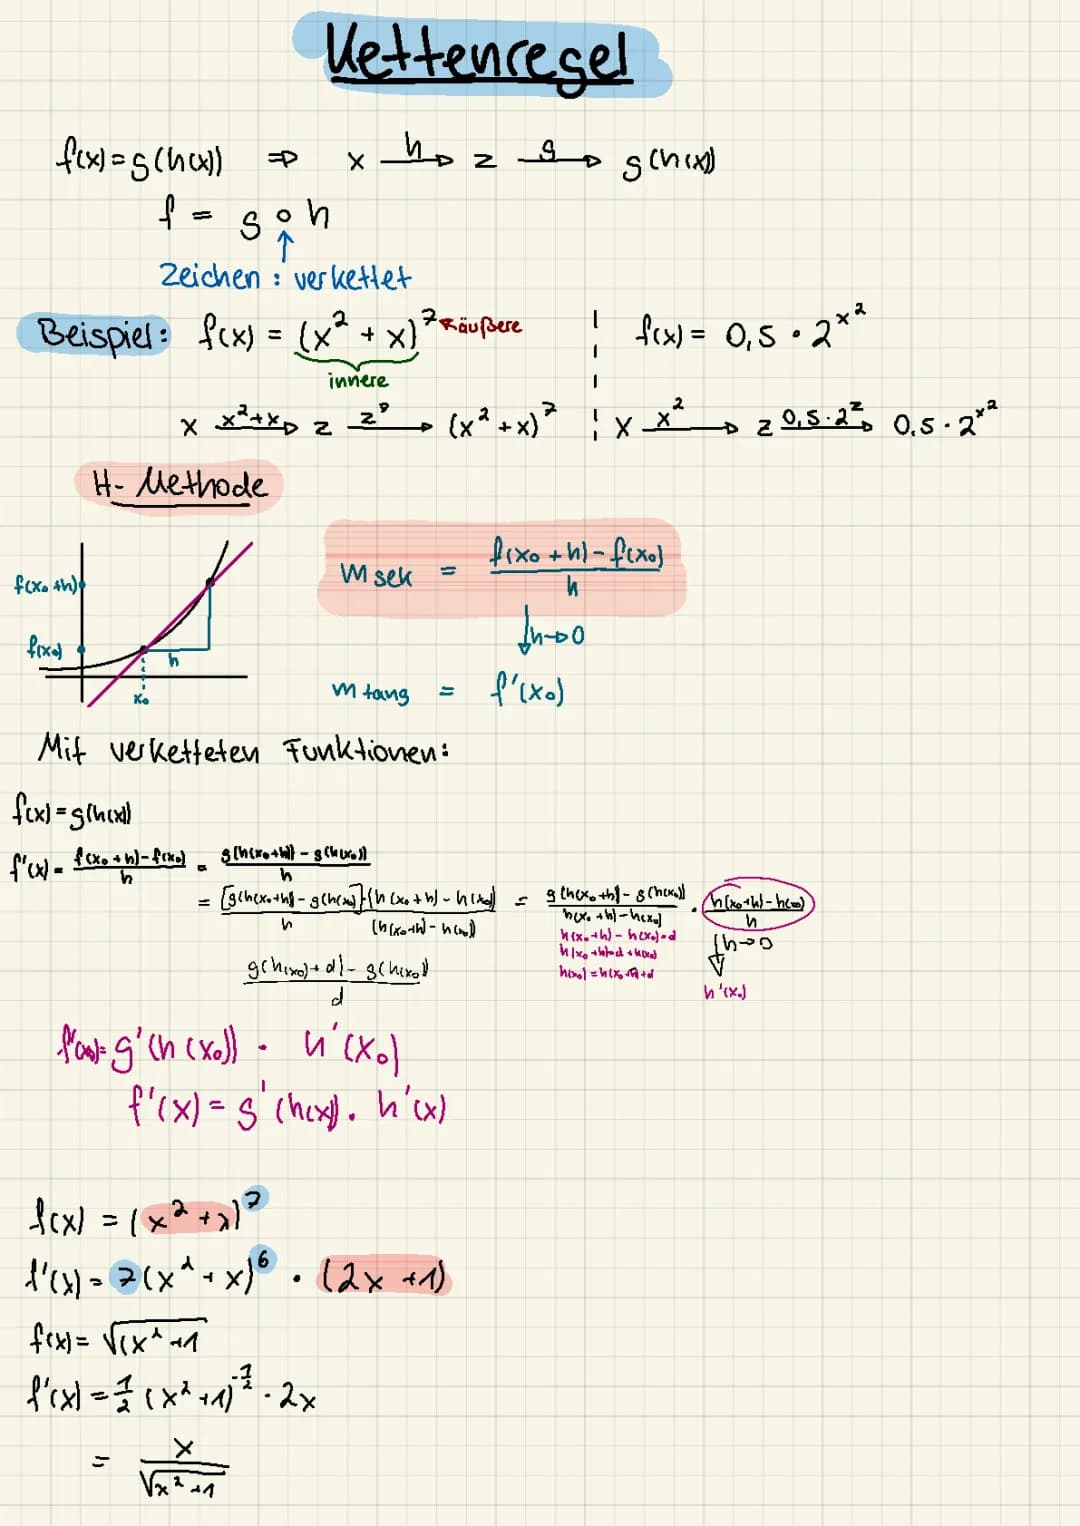 Kettenregel
f(x) = g(h(x)) ⇒ x —h→ z —g→ g(h(x))
f = g ∘ h
↑
Zeichen : verkettet
Beispiel: f(x) = (x² + x)⁷ ↖äußere
innere
x —x²+x→ z —z⁷→ (x² + x)⁷
f(x) = 0,5 · 2^x²
x —x²→ z —0,5·2^z→ 0,5 · 2^x²
H- Methode
f(x₀+h)
f(x₀)
h
x₀
m sek = f(x₀ + h) - f(x₀) / h
↓ h→0
m tang = f'(x₀)
Mit verketteten Funktionen:
f(x) = g(h(x))
f'(x) = f(x₀ + h) - f(x₀) / h = g(h(x₀+h)) - g(h(x₀)) / h
= [g(h(x₀+h)) - g(h(x₀))]·(h(x₀+h) - h(x₀)) / h (h(x₀+h) - h(x₀)) = g(h(x₀+h)) - g(h(x₀)) / h(x₀+h) - h(x₀) · h(x₀+h) - h(x₀) / h
h(x₀+h) - h(x₀) = d
h(x₀+h) = d + h(x₀)
↓ h→0
h'(x₀)
g(h(x₀) + d) - g(h(x₀)) / d
f'(x₀) = g'(h(x₀)) · h'(x₀)
f'(x) = g'(h(x)) · h'(x)
f(x) = (x² + x)⁷
f'(x) = 7(x² + x)⁶ · (2x + 1)
f(x) = √(x² + 1
f'(x) = 1/2 (x² + 1)^-1/2 · 2x
= x / √x² + 1